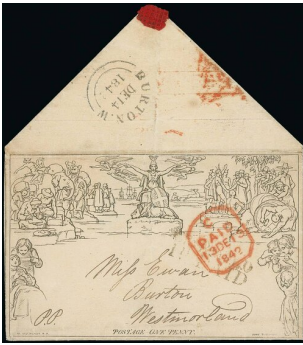 BURTON.W
DE14
184
PAID
13DE
1842
Miss Ewan
Burton
Westmorland
P.P.
POSTAGE ONE PENNY.